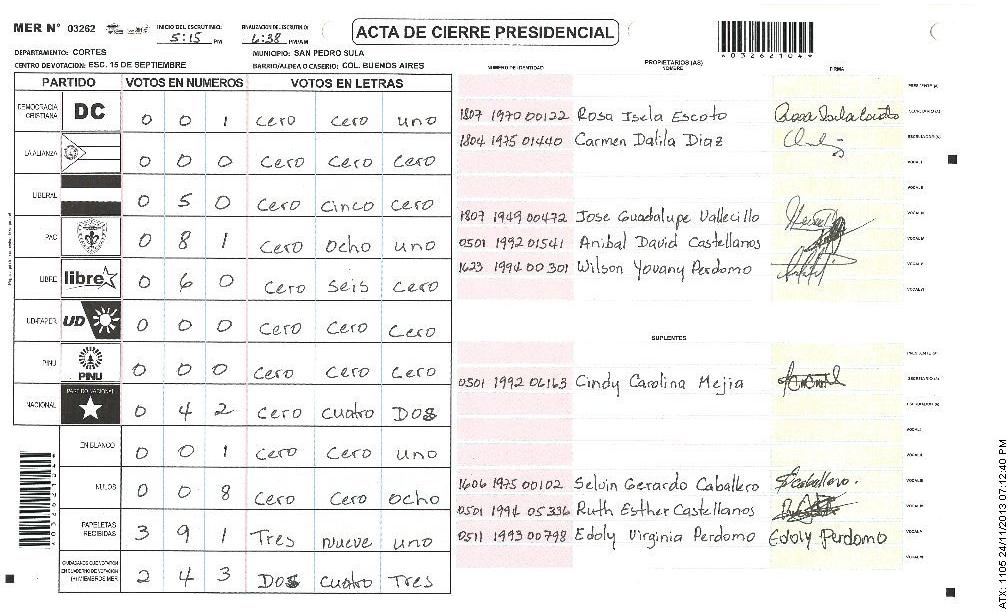 MER N° 03262 INICIO DEL ESCRUTINIO: 5:15 PM FINALIZACION DEL ESCRUTINIO: 6:38 PM/AM
ACTA DE CIERRE PRESIDENCIAL
*03262104*
DEPARTAMENTO: CORTES MUNICIPIO: SAN PEDRO SULA
CENTRO DE VOTACION: ESC. 15 DE SEPTIEMBRE BARRIO/ALDEA O CASERIO: COL. BUENOS AIRES
PARTIDO VOTOS EN NUMEROS VOTOS EN LETRAS
DEMOCRACIA CRISTIANA DC 0 0 1 Cero Cero uno
LA ALIANZA 0 0 0 Cero Cero Cero
LIBERAL 0 5 0 Cero Cinco Cero
PAC 0 8 1 Cero Ocho uno
LIBRE libre 0 6 0 Cero Seis Cero
UD-FAPER UD 0 0 0 Cero Cero Cero
PINU PINU 0 0 0 Cero Cero Cero
NACIONAL PARTIDO NACIONAL 0 4 2 Cero Cuatro Dos
EN BLANCO 0 0 1 Cero Cero uno
NULOS 0 0 8 Cero Cero Ocho
PAPELETAS RECIBIDAS 3 9 1 Tres Nueve uno
CIUDADANOS QUE VOTARON EN CUADERNO DE VOTACION (+) MIEMBROS MER 2 4 3 Dos Cuatro Tres
NUMERO DE IDENTIDAD PROPIETARIOS (AS) NOMBRE FIRMA
PRESIDENTE (A)
1807 1970 00122 Rosa Isela Escoto SECRETARIO (A)
1804 1975 01440 Carmen Dalila Diaz ESCRUTADOR (A)
VOCAL I
VOCAL II
1807 1949 00472 Jose Guadalupe Vallecillo VOCAL III
0501 1992 01541 Anibal David Castellanos VOCAL IV
1623 1994 00301 Wilson Yovany Perdomo VOCAL V
VOCAL VI
SUPLENTES
PRESIDENTE (A)
0501 1992 06163 Cindy Carolina Mejia SECRETARIO (A)
ESCRUTADOR (A)
VOCAL I
VOCAL II
1606 1975 00102 Selvin Gerardo Caballero S Caballero. VOCAL III
0501 1994 05336 Ruth Esther Castellanos VOCAL IV
0511 1993 00798 Edoly Virginia Perdomo Edoly Perdomo VOCAL V
VOCAL VI
ATX: 1105 24/11/2013 07:12:40 PM